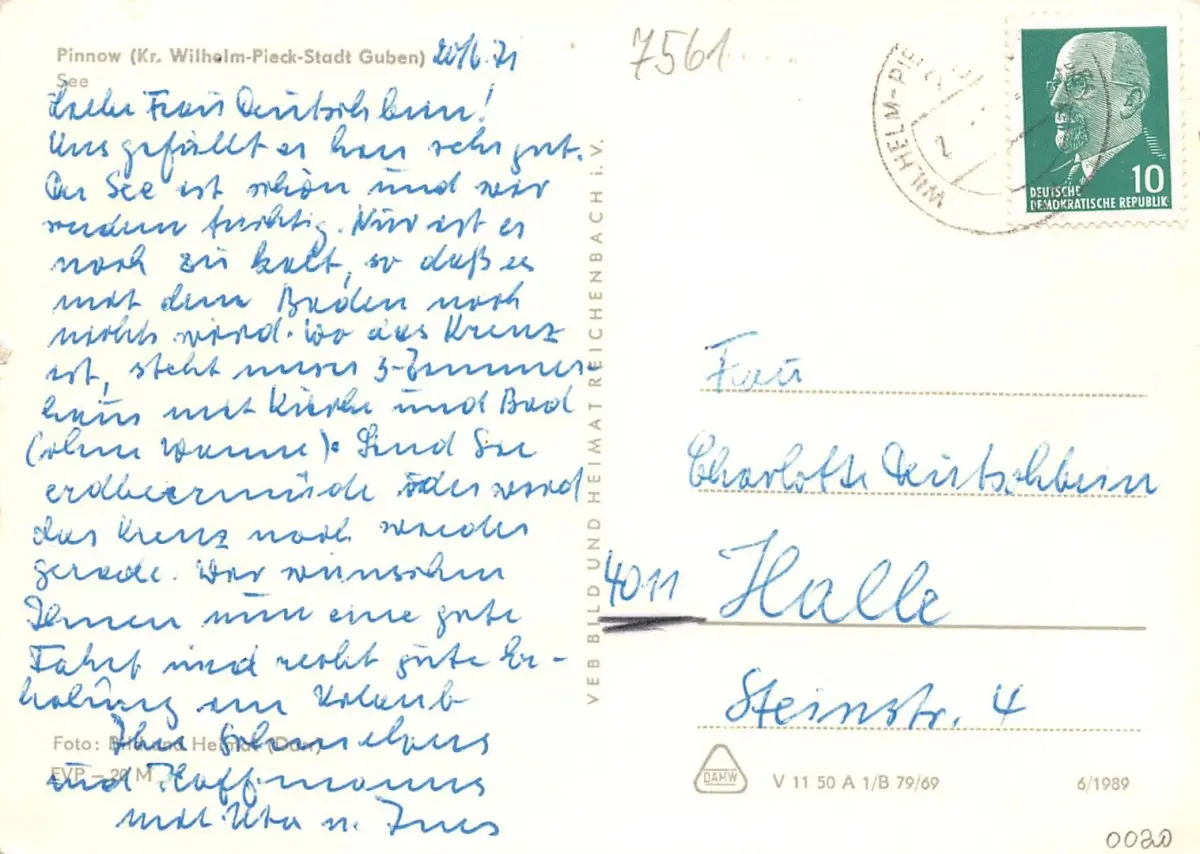 Pinnow (Kr. Wilhelm-Pieck-Stadt Guben) 20/6.71
See
Liebe Frau Deutschbein!
Uns gefällt es hier sehr gut.
Der See ist schön und wir
rudern tüchtig. Nur ist es
noch zu kalt, so daß es
mit dem Baden noch
nichts wird. Wo das Kreuz
ist, steht unser 3-Zimmer-
haus mit Küche und Bad
(ohne Wanne). Sind Sie
erdbeermüde oder wird
das Kreuz noch wieder
gerade. Wir wünschen
Ihnen nun eine gute
Fahrt und recht gute Er-
holung im Urlaub
Foto: Bild und Heimat
Ihre
EVP – 20 M
und Hoffmanns
mit Uta u. Ines
VEB BILD UND HEIMAT REICHENBACH i. V.
7561
WILHELM-PI
DEUTSCHE
DEMOKRATISCHE REPUBLIK
10
Frau
Charlotte Deutschbein
4011 Halle
Steinstr. 4
DAMW
V 11 50 A 1/B 79/69
6/1989
0020